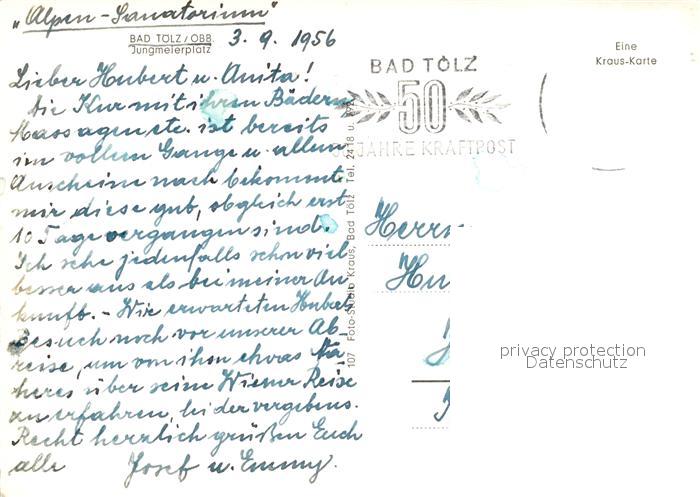 „Alpen-Sanatorium"
BAD TÖLZ/OBB.
Jungmeierplatz
3. 9. 1956
Lieber Hubert u. Anita!
Die Kur mit ihren Bädern
Massagen etc. ist bereits
im vollem Gange u. allem
Anscheine nach bekommt
mir diese gut, obgleich erst
10 Tage vergangen sind.
Ich sehe jedenfalls schon viel
besser aus als bei meiner An
kunft. - Wir erwarteten Huberts
Besuch noch vor unserer Ab,
reise, um von ihm etwas Nä
heres über seine Wiener Reise
zu erfahren, leider vergebens.
Recht herzlich grüßen Euch
alle Josef u. Emmy.
107 Foto-Studio Kraus, Bad Tölz Tel. 2418 u.
BAD TÖLZ
50
JAHRE KRAFTPOST
Eine
Kraus-Karte
Herrn
Hu
privacy protection
Datenschutz